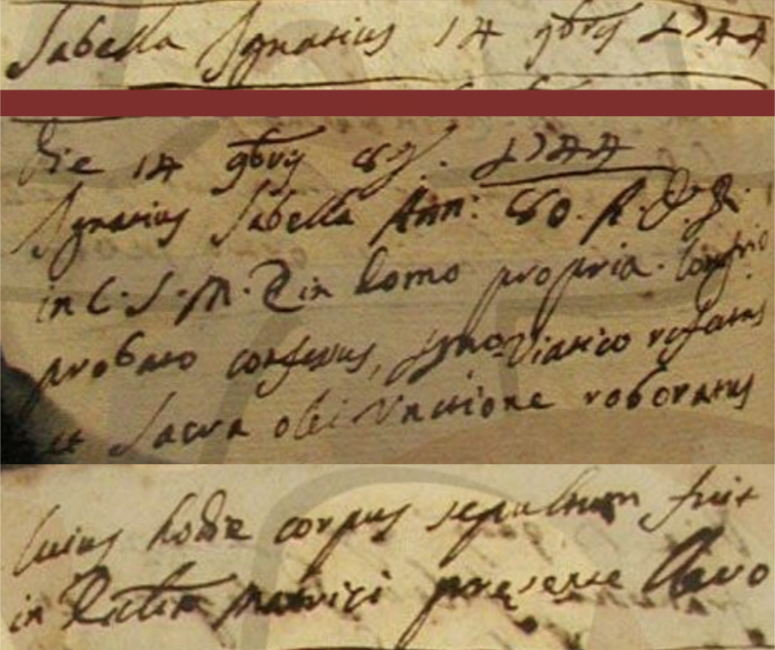 Sabella Ignatius 14 9bris 1744
Die 14 9bris 8ae Ind. 1744
Ignatius Sabella Ann: 80. R. D. Fr.
in C. S. M. E. in domo propria. Confrio
probato confessus, ssmo Viatico refectus
et Sacra olei Unctione roboratus
Cuius hodie corpus sepultum fuit
in Eccl.a Matrici presente Clero